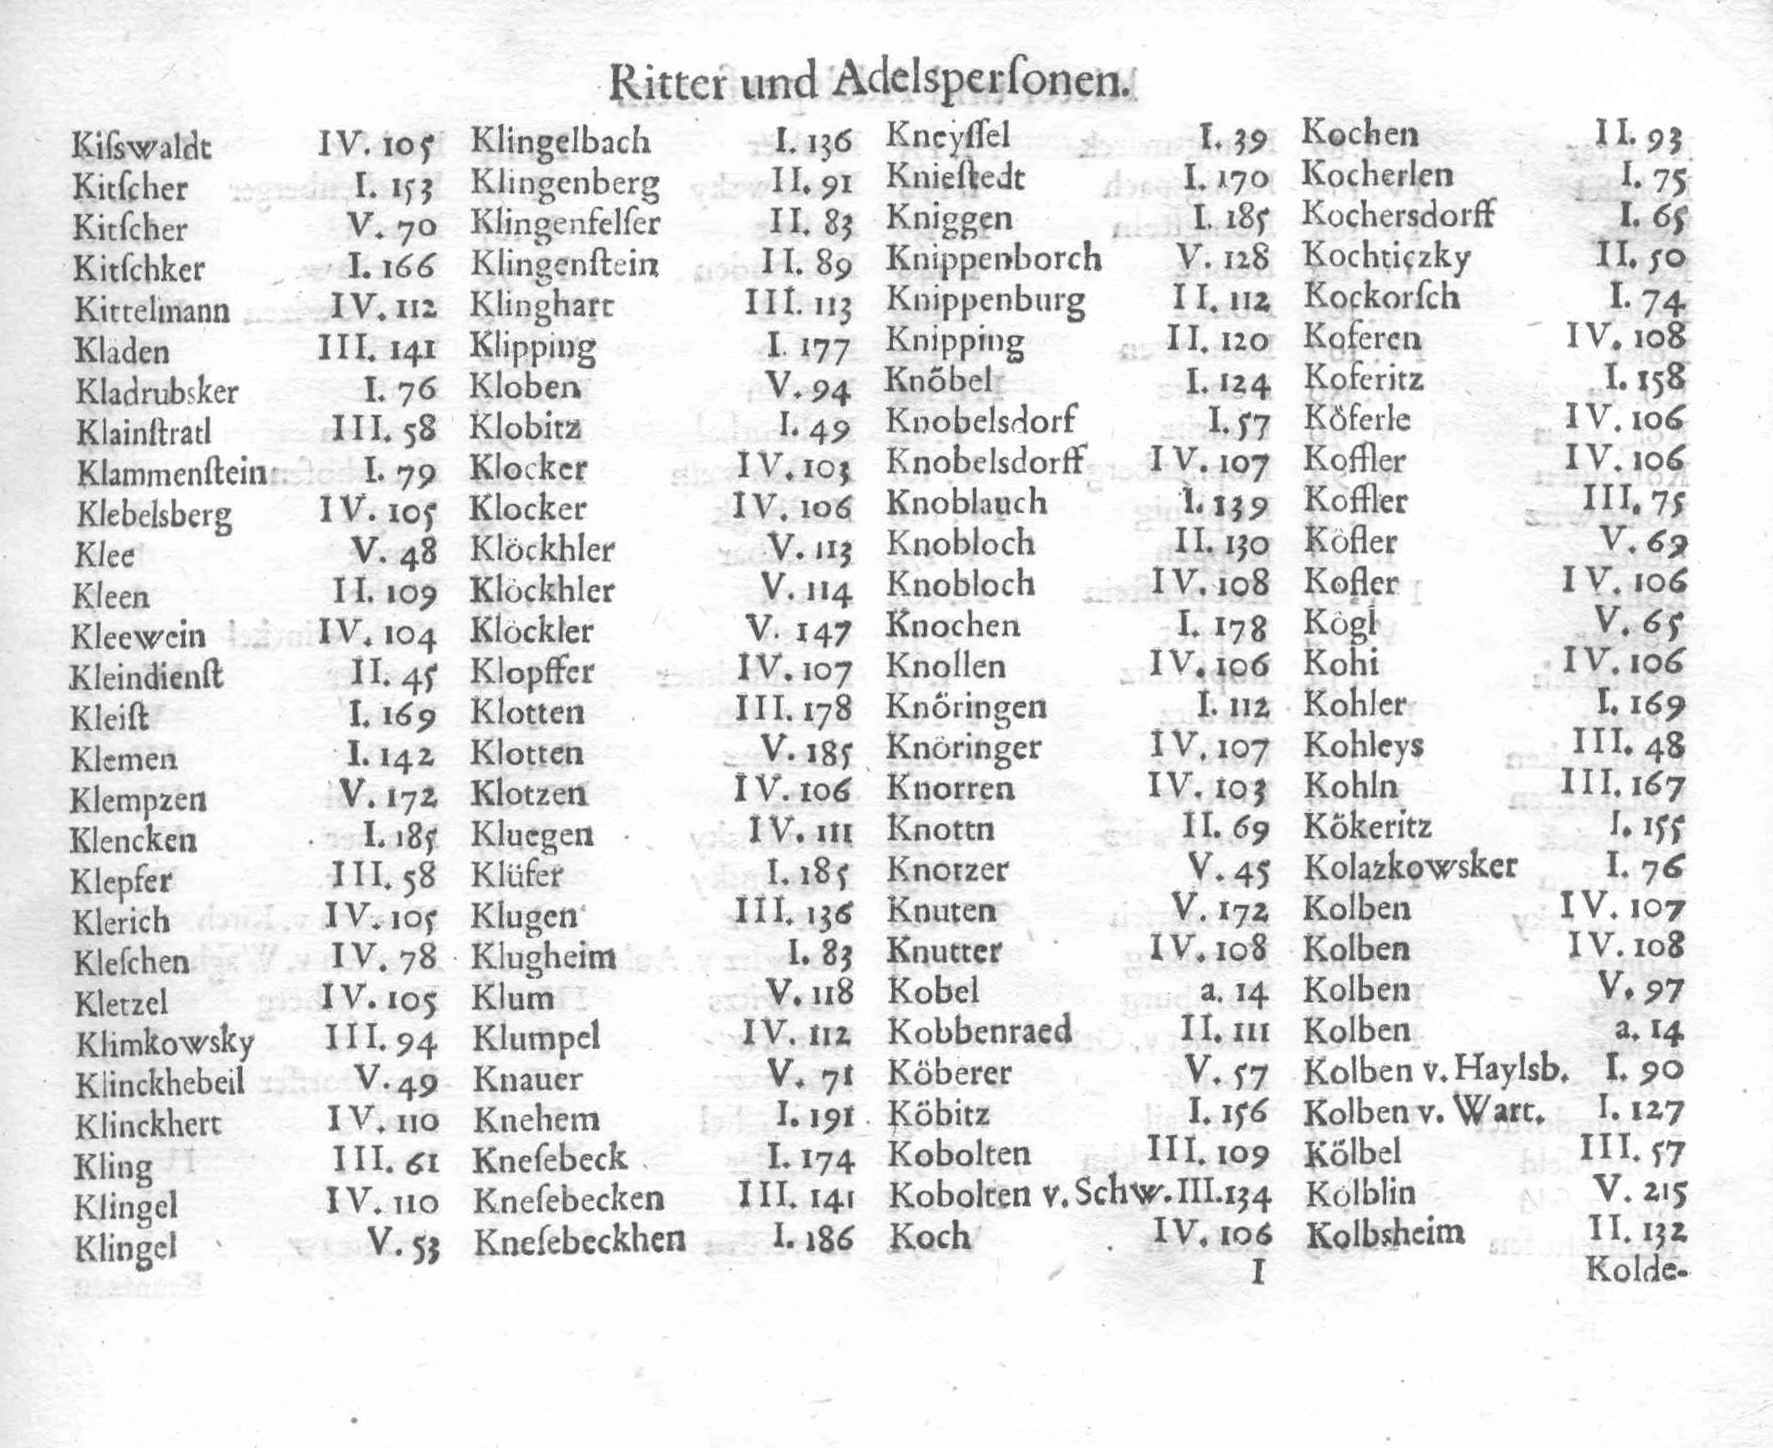 Ritter und Adelsperſonen.
Kiſswaldt IV. 105
Kitſcher I. 153
Kitſcher V. 70
Kitſchker I. 166
Kittelmann IV. 112
Kladen III. 141
Kladrubsker I. 76
Klainſtratl III. 58
Klammenſtein I. 79
Klebelsberg IV. 105
Klee V. 48
Kleen II. 109
Kleewein IV. 104
Kleindienſt II. 45
Kleiſt I. 169
Klemen I. 142
Klempzen V. 172
Klencken I. 185
Klepfer III. 58
Klerich IV. 105
Kleſchen IV. 78
Kletzel IV. 105
Klimkowsky III. 94
Klinckhebeil V. 49
Klinckhert IV. 110
Kling III. 61
Klingel IV. 110
Klingel V. 53
Klingelbach I. 136
Klingenberg II. 91
Klingenfelſer II. 83
Klingenſtein II. 89
Klinghart III. 113
Klipping I. 177
Kloben V. 94
Klobitz I. 49
Klocker IV. 103
Klocker IV. 106
Klöckhler V. 113
Klöckhler V. 114
Klöckler V. 147
Klopffer IV. 107
Klotten III. 178
Klotten V. 185
Klotzen IV. 106
Kluegen IV. 111
Klüfer I. 185
Klugen III. 136
Klugheim I. 83
Klum V. 118
Klumpel IV. 112
Knauer V. 71
Knehem I. 191
Kneſebeck I. 174
Kneſebecken III. 141
Kneſebeckhen I. 186
Kneyſſel I. 39
Knieſtedt I. 170
Kniggen I. 185
Knippenborch V. 128
Knippenburg II. 112
Knipping II. 120
Knöbel I. 124
Knobelsdorf I. 57
Knobelsdorff IV. 107
Knoblauch I. 139
Knobloch II. 130
Knobloch IV. 108
Knochen I. 178
Knollen IV. 106
Knöringen I. 112
Knöringer IV. 107
Knorren IV. 103
Knottn II. 69
Knotzer V. 45
Knuten V. 172
Knutter IV. 108
Kobel a. 14
Kobbenraed II. 111
Köberer V. 57
Köbitz I. 156
Kobolten III. 109
Kobolten v. Schw. III. 134
Koch IV. 106
Kochen II. 93
Kocherlen I. 75
Kochersdorff I. 65
Kochticzky II. 50
Kockorſch I. 74
Koferen IV. 108
Koferitz I. 158
Köferle IV. 106
Koffler IV. 106
Koffler III. 75
Köfler V. 69
Kofler IV. 106
Kögl V. 65
Kohi IV. 106
Kohler I. 169
Kohleys III. 48
Kohln III. 167
Kökeritz I. 155
Kolazkowsker I. 76
Kolben IV. 107
Kolben IV. 108
Kolben V. 97
Kolben a. 14
Kolben v. Haylsb. I. 90
Kolben v. Wart. I. 127
Kölbel III. 57
Kölblin V. 215
Kolbsheim II. 132
I Kolde-